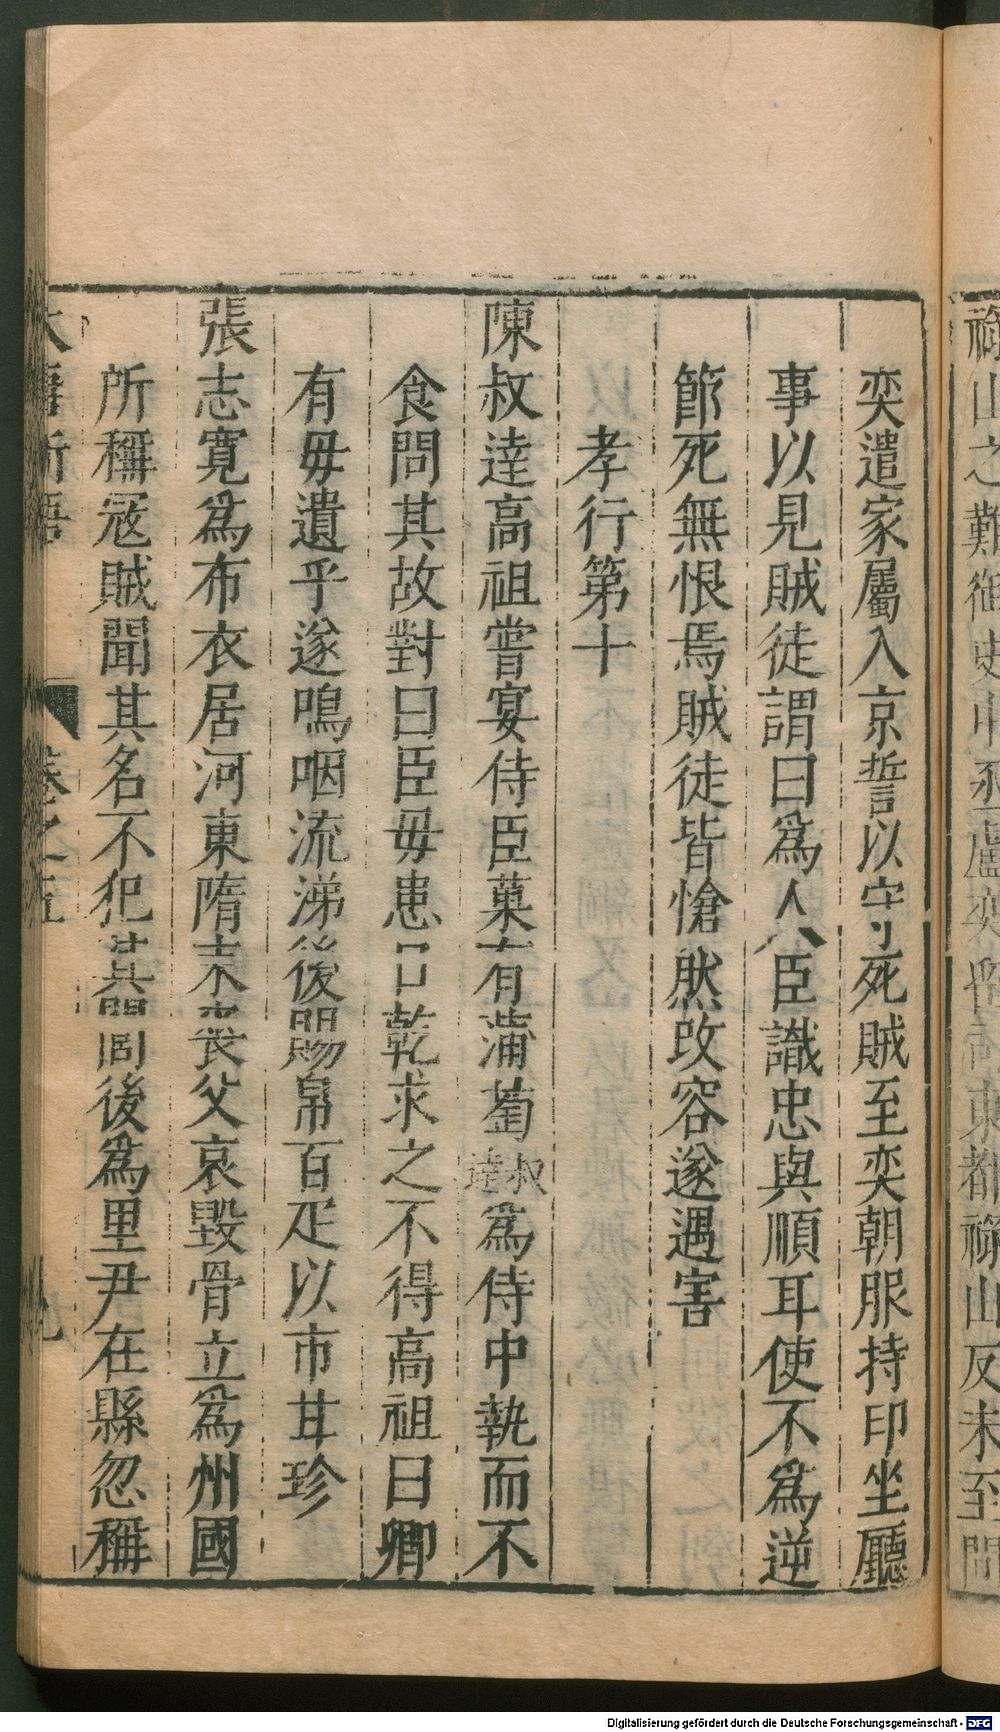 祿山之難御史中丞盧奕留司東都祿山反未至間
奕遣家屬入京誓以守死賊至奕朝服持印坐廳
事以見賊徒謂曰為人臣識忠與順耳使不為逆
節死無恨焉賊徒皆愴然改容遂遇害
孝行第十
陳叔達高祖嘗宴侍臣菓有蒲萄叔達為侍中執而不
食問其故對曰臣毋患口乾求之不得高祖曰卿
有毋遺乎遂嗚咽流涕後賜帛百疋以市甘珍
張志寬為布衣居河東隋末喪父哀毀骨立為州國
所稱寇賊聞其名不犯其閭後為里尹在縣忽稱
大唐新語 卷之五 九
Digitalisierung gefördert durch die Deutsche Forschungsgemeinschaft - DFG